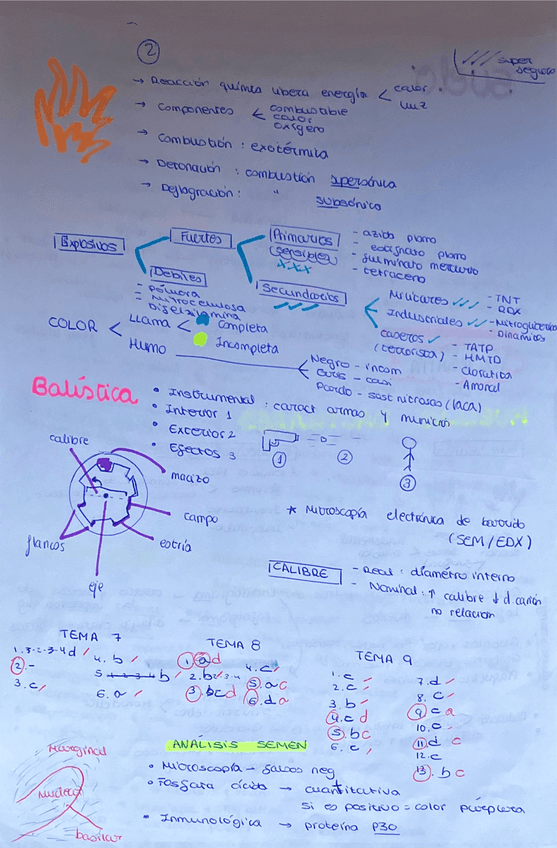 ②
super
seguros
→ Reacción química libera energía < calor
luz
→ Componentes < combustible
calor
oxígeno
→ Combustión : exotérmica
→ Detonación : combustión supersónica
→ Deflagración : " subsónica
Explosivos
Fuertes
Primarios
(sensibles)
xxx
- azida plomo
- estifnato plomo
- fulminato mercurio
- tetraceno
Débiles
- pólvora
- Nitrocelulosa
Secundarios
Militares
- TNT
- RDX
Industriales
- Nitroglicerina
- Dinamitas
caseros
(terrorista)
- TATP
- HMTD
- Cloratita
- Amonal
COLOR < Llama < Completa
Incompleta
Humo
Negro - incom
Gris - casi
Pardo - sust nitrosas (laca)
Balística
• Instrumental : caract armas y munición
• Interior 1
• Exterior 2
• Efectos 3
① ② ③
calibre
macizo
campo
estría
flancos
eje
* Microscopía electrónica de barrido
(SEM/EDX)
CALIBRE
- Real : diámetro interno
- Nominal : ↑ calibre ↓ d cañón
no relación
TEMA 7
2. -
3. c
4. b
6. a
TEMA 8
1. a d
3. b c d
4. c
5. a c
6. d a
TEMA 9
1. c
2. c
3. b
4. c d
5. b c
6. c
7. d
8. c
9. c a
10. c
11. d c
12. c
13. b c
Marginal
Nuclear
basilar
ANÁLISIS SEMEN
• Microscopía - falsos neg
• Fosfata ácida → cuantitativa
si es positivo = color púrpura
• Inmunológica → proteína P30